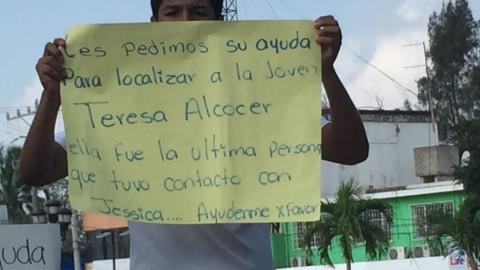 Les pedimos su ayuda
Para localizar a la Joven
Teresa Alcocer
ella fue la ultima persona
que tuvo contacto con
Jessica.... Ayudenme x Favor
yuda